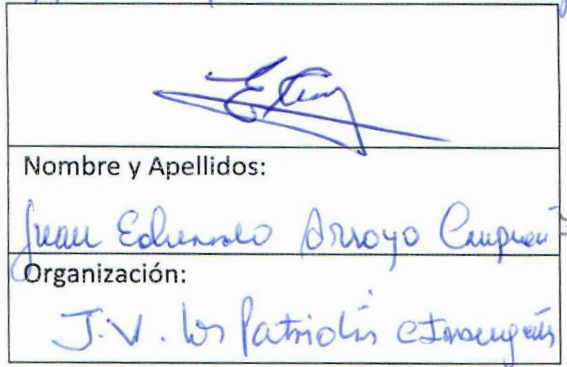 Nombre y Apellidos:
Juan Eduardo Arroyo
Organización:
J.V. los Patriotas